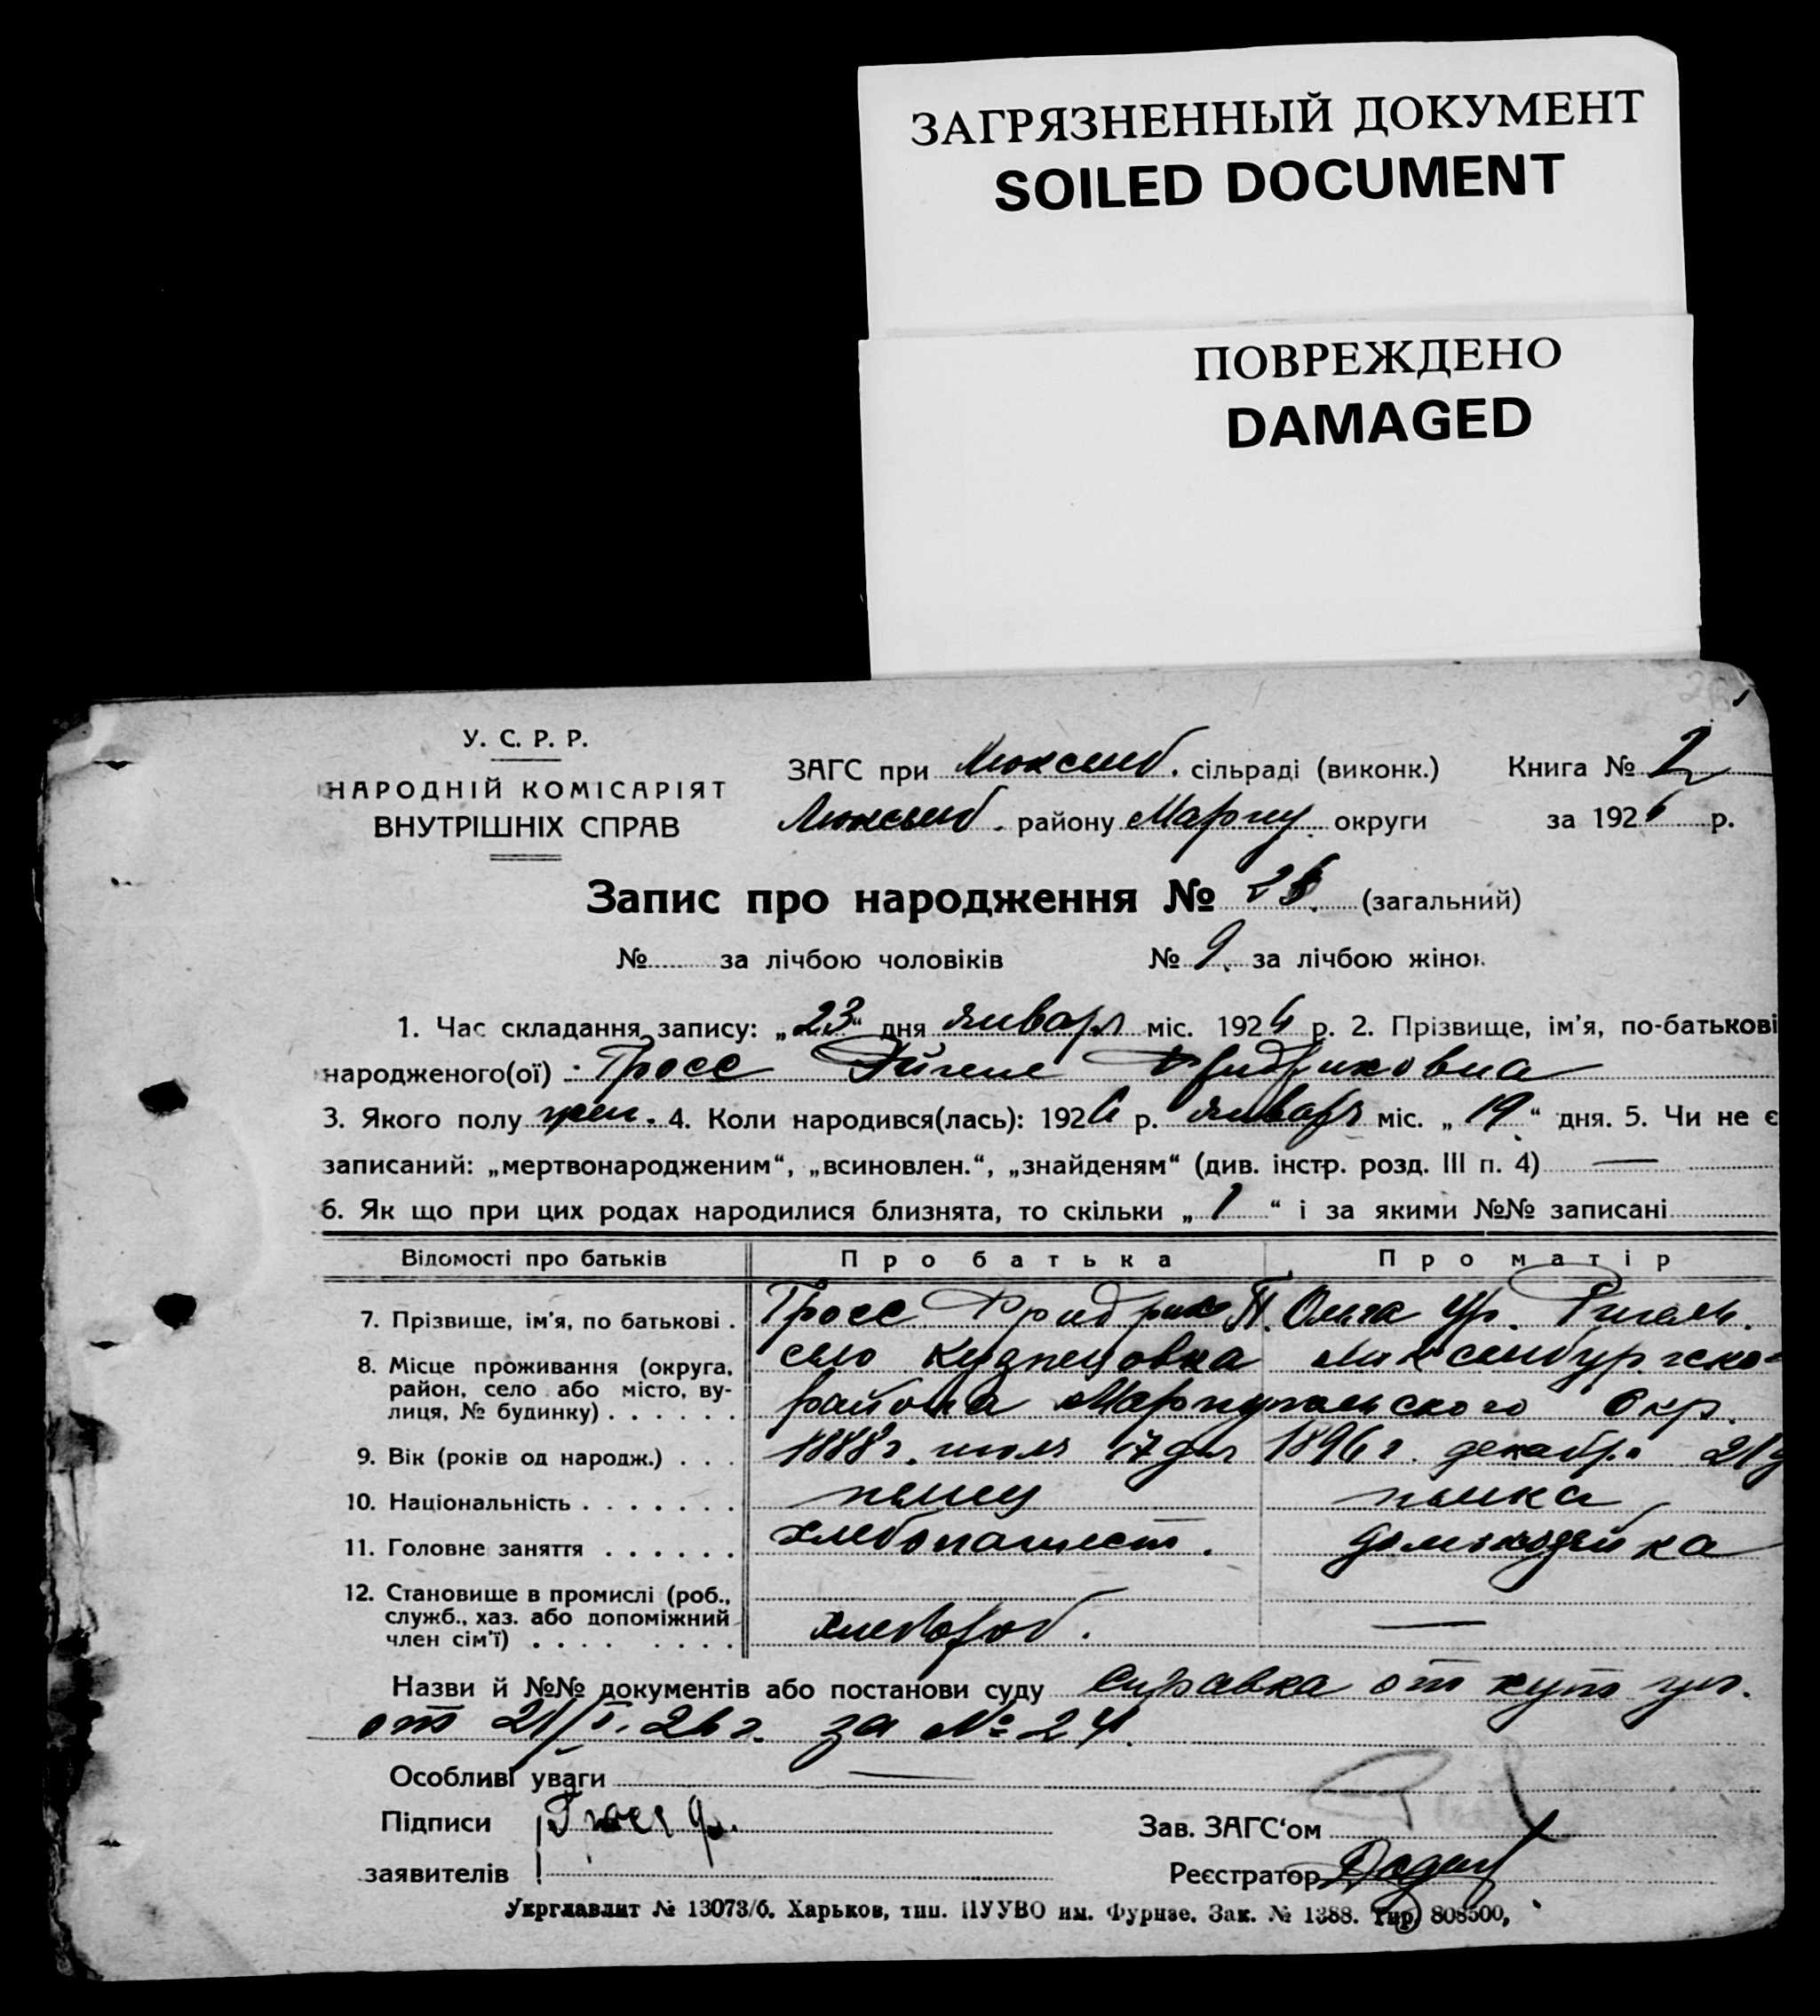 ЗАГРЯЗНЕННЫЙ ДОКУМЕНТ
SOILED DOCUMENT
ПОВРЕЖДЕНО
DAMAGED
У. С. Р. Р.
НАРОДНІЙ КОМІСАРІЯТ
ВНУТРІШНІХ СПРАВ
ЗАГС при Люксемб. сільраді (виконк.) Книга № 2
Люксемб. району Мариу. округи за 1926 р.
Запис про народження № (загальний)
№ за лічбою чоловіків № 9. за лічбою жінок
1. Час складання запису: „23“ дня января міс. 1926 р. 2. Прізвище, ім'я, по-батькові
народженого(ої) Гросс Фридриховна
3. Якого полу жен. 4. Коли народився(лась): 1926 р. января міс. „19“ дня. 5. Чи не є
записаний: „мертвонародженим“, „всиновлен.“, „знайденям“ (див. інстр. розд. III п. 4) —
6. Як що при цих родах народилися близнята, то скільки „1“ і за якими №№ записані
Відомості про батьків Про батька Про матір
7. Прізвише, ім'я, по батькові . Гросс Фридрих П. Ольга ур. Ригель.
8. Місце проживання (округа, район, село або місто, вулиця, № будинку) . . . . . . село Кузнецовка Люксембургско-
района Мариупольского Окр.
9. Вік (років од народж.) . . . 1888 г. июля 17 дня 1896 г. декабр. 21 д
10. Національність . . . . . . . немец немка
11. Головне заняття . . . . . . хлебопашест. домохозяйка
12. Становище в промислі (роб., служб., хаз. або допоміжний член сім'ї) . . . . . . . . хлебороб. —
Назви й №№ документів або постанови суду Справка от
от 21/I. 26 г. за № 24.
Особливі уваги —
Підписи Гросс Ф.
заявителів
Зав. ЗАГС'ом
Реєстратор
Укрглавлит № 13073/б. Харьков, тип. ПУУВО им. Фрунзе. Зак. № 1388. Тир. 808500,